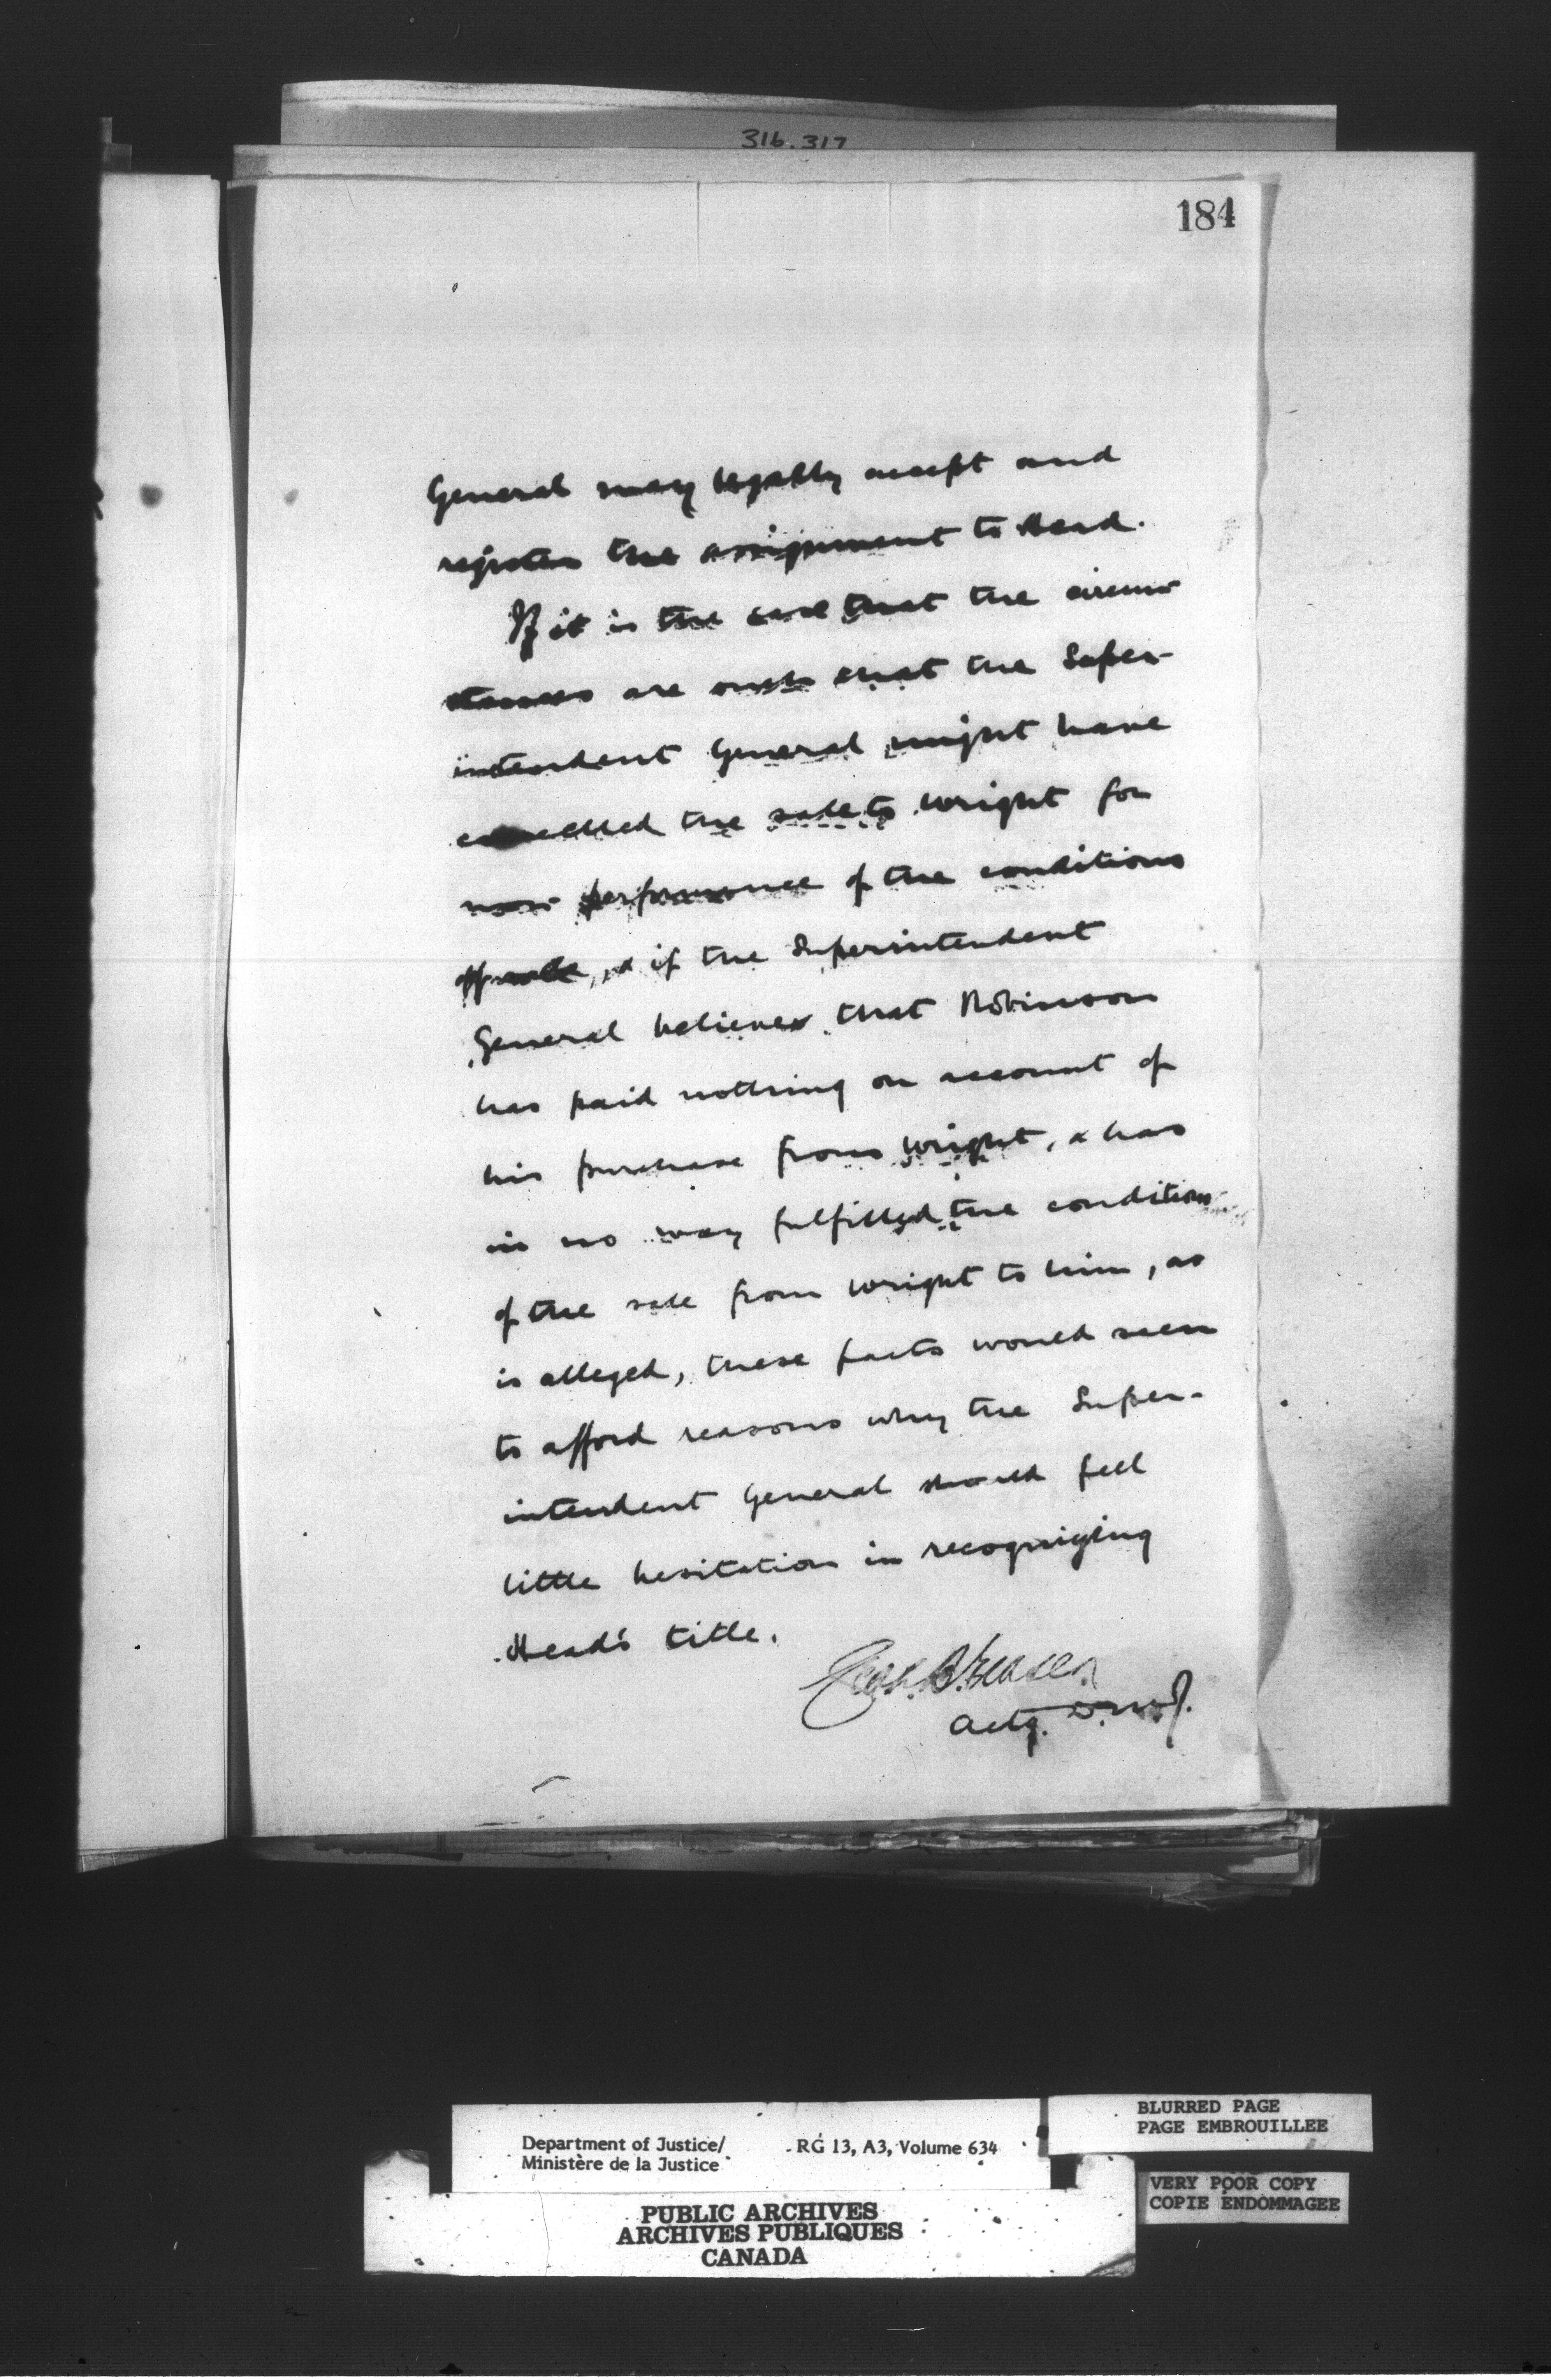 316.317
184
General may legally accept and
register the assignment to Head.
If it is the case that the circum-
stances are such that the Super-
intendent General might have
cancelled the sale to Wright for
non-performance of the conditions
of sale, & if the Superintendent
General believes that Robinson
has paid nothing on account of
his purchase from Wright, & has
in no way fulfilled the conditions
of the sale from Wright to him, as
is alleged, these facts would seem
to afford reasons why the Super-
intendent General should feel
little hesitation in recognizing
Head's title.
Actg. D.M.J.
Department of Justice/
Ministère de la Justice
RG 13, A3, Volume 634
BLURRED PAGE
PAGE EMBROUILLEE
VERY POOR COPY
COPIE ENDOMMAGEE
PUBLIC ARCHIVES
ARCHIVES PUBLIQUES
CANADA